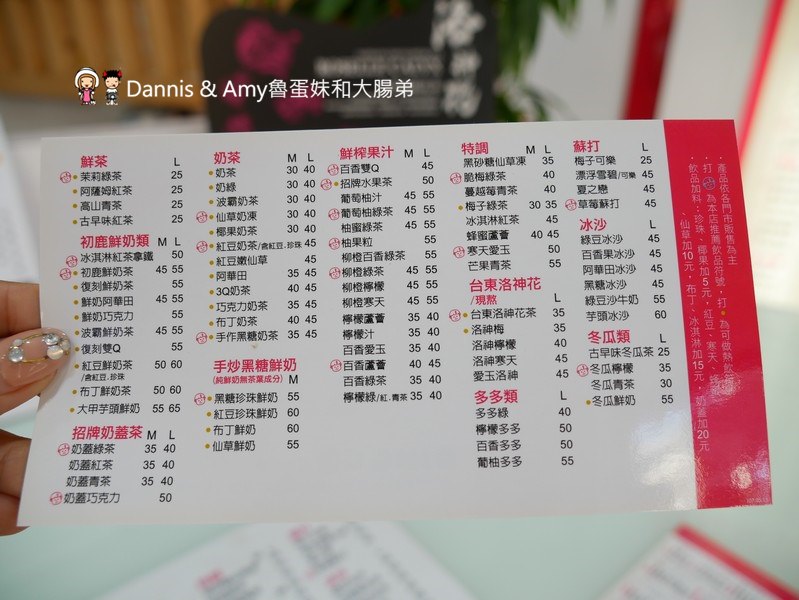 Dannis & Amy魯蛋妹和大腸弟
洛神
鮮茶 L
茉莉綠茶 25
阿薩姆紅茶 25
高山青茶 25
古早味紅茶 25
初鹿鮮奶類 M L
冰淇淋紅茶拿鐵 50
初鹿鮮奶茶 45 55
復刻鮮奶茶 55
鮮奶阿華田 45 55
鮮奶巧克力 55
波霸鮮奶茶 45 55
復刻雙Q 55
紅豆鮮奶茶 50 60
/含紅豆.珍珠
布丁鮮奶茶 50 60
大甲芋頭鮮奶 55 65
招牌奶蓋茶 M L
奶蓋綠茶 35 40
奶蓋紅茶 35 40
奶蓋青茶 35 40
奶蓋巧克力 50
奶茶 M L
奶茶 30 40
奶綠 30 40
波霸奶茶 30 40
仙草奶凍 30 40
椰果奶茶 30 40
紅豆奶茶/含紅豆.珍珠 45
紅豆嫩仙草 45
阿華田 35 45
3Q奶茶 40
巧克力奶茶 35 45
布丁奶茶 40 45
手作黑糖奶茶 35 45
手炒黑糖鮮奶
(純鮮奶無茶葉成分) M
黑糖珍珠鮮奶 55
紅豆珍珠鮮奶 60
布丁鮮奶 60
仙草鮮奶 55
鮮榨果汁 M L
百香雙Q 45
招牌水果茶 50
葡萄柚汁 45 55
葡萄柚綠茶 45 55
柚蜜綠茶 45 55
柚果粒 55
柳橙百香綠茶 55
柳橙綠茶 45 55
柳橙檸檬 45 55
柳橙寒天 45 55
檸檬蘆薈 35 40
檸檬汁 35 40
百香愛玉 35 40
百香蘆薈 40 45
百香綠茶 35 40
檸檬綠/紅.青茶 35 40
特調 M L
黑砂糖仙草凍 35
脆梅綠茶 40
蔓越莓青茶 40
梅子綠茶 30 35
冰淇淋紅茶 45
蜂蜜蘆薈 40 45
寒天愛玉 50
芒果青茶 55
台東洛神花
/現熬 L
台東洛神花茶 35
洛神梅 35
洛神檸檬 40
洛神寒天 45
愛玉洛神 45
多多類 L
多多綠 40
檸檬多多 50
百香多多 50
葡柚多多 55
蘇打 L
梅子可樂 25
漂浮雪碧/可樂 45
夏之戀 45
草莓蘇打 45
冰沙 L
綠豆冰沙 45
百香果冰沙 45
阿華田冰沙 45
黑糖冰沙 45
綠豆沙牛奶 55
芋頭冰沙 60
冬瓜類 L
古早味冬瓜茶 25
冬瓜檸檬 35
冬瓜青茶 30
冬瓜鮮奶 55
產品依各門市販售為主
打 為本店推薦飲品符號，打 為可做熱飲
飲品加料：珍珠、椰果加5元，紅豆、寒天、
仙草加10元，布丁、冰淇淋加15元，奶蓋加20元